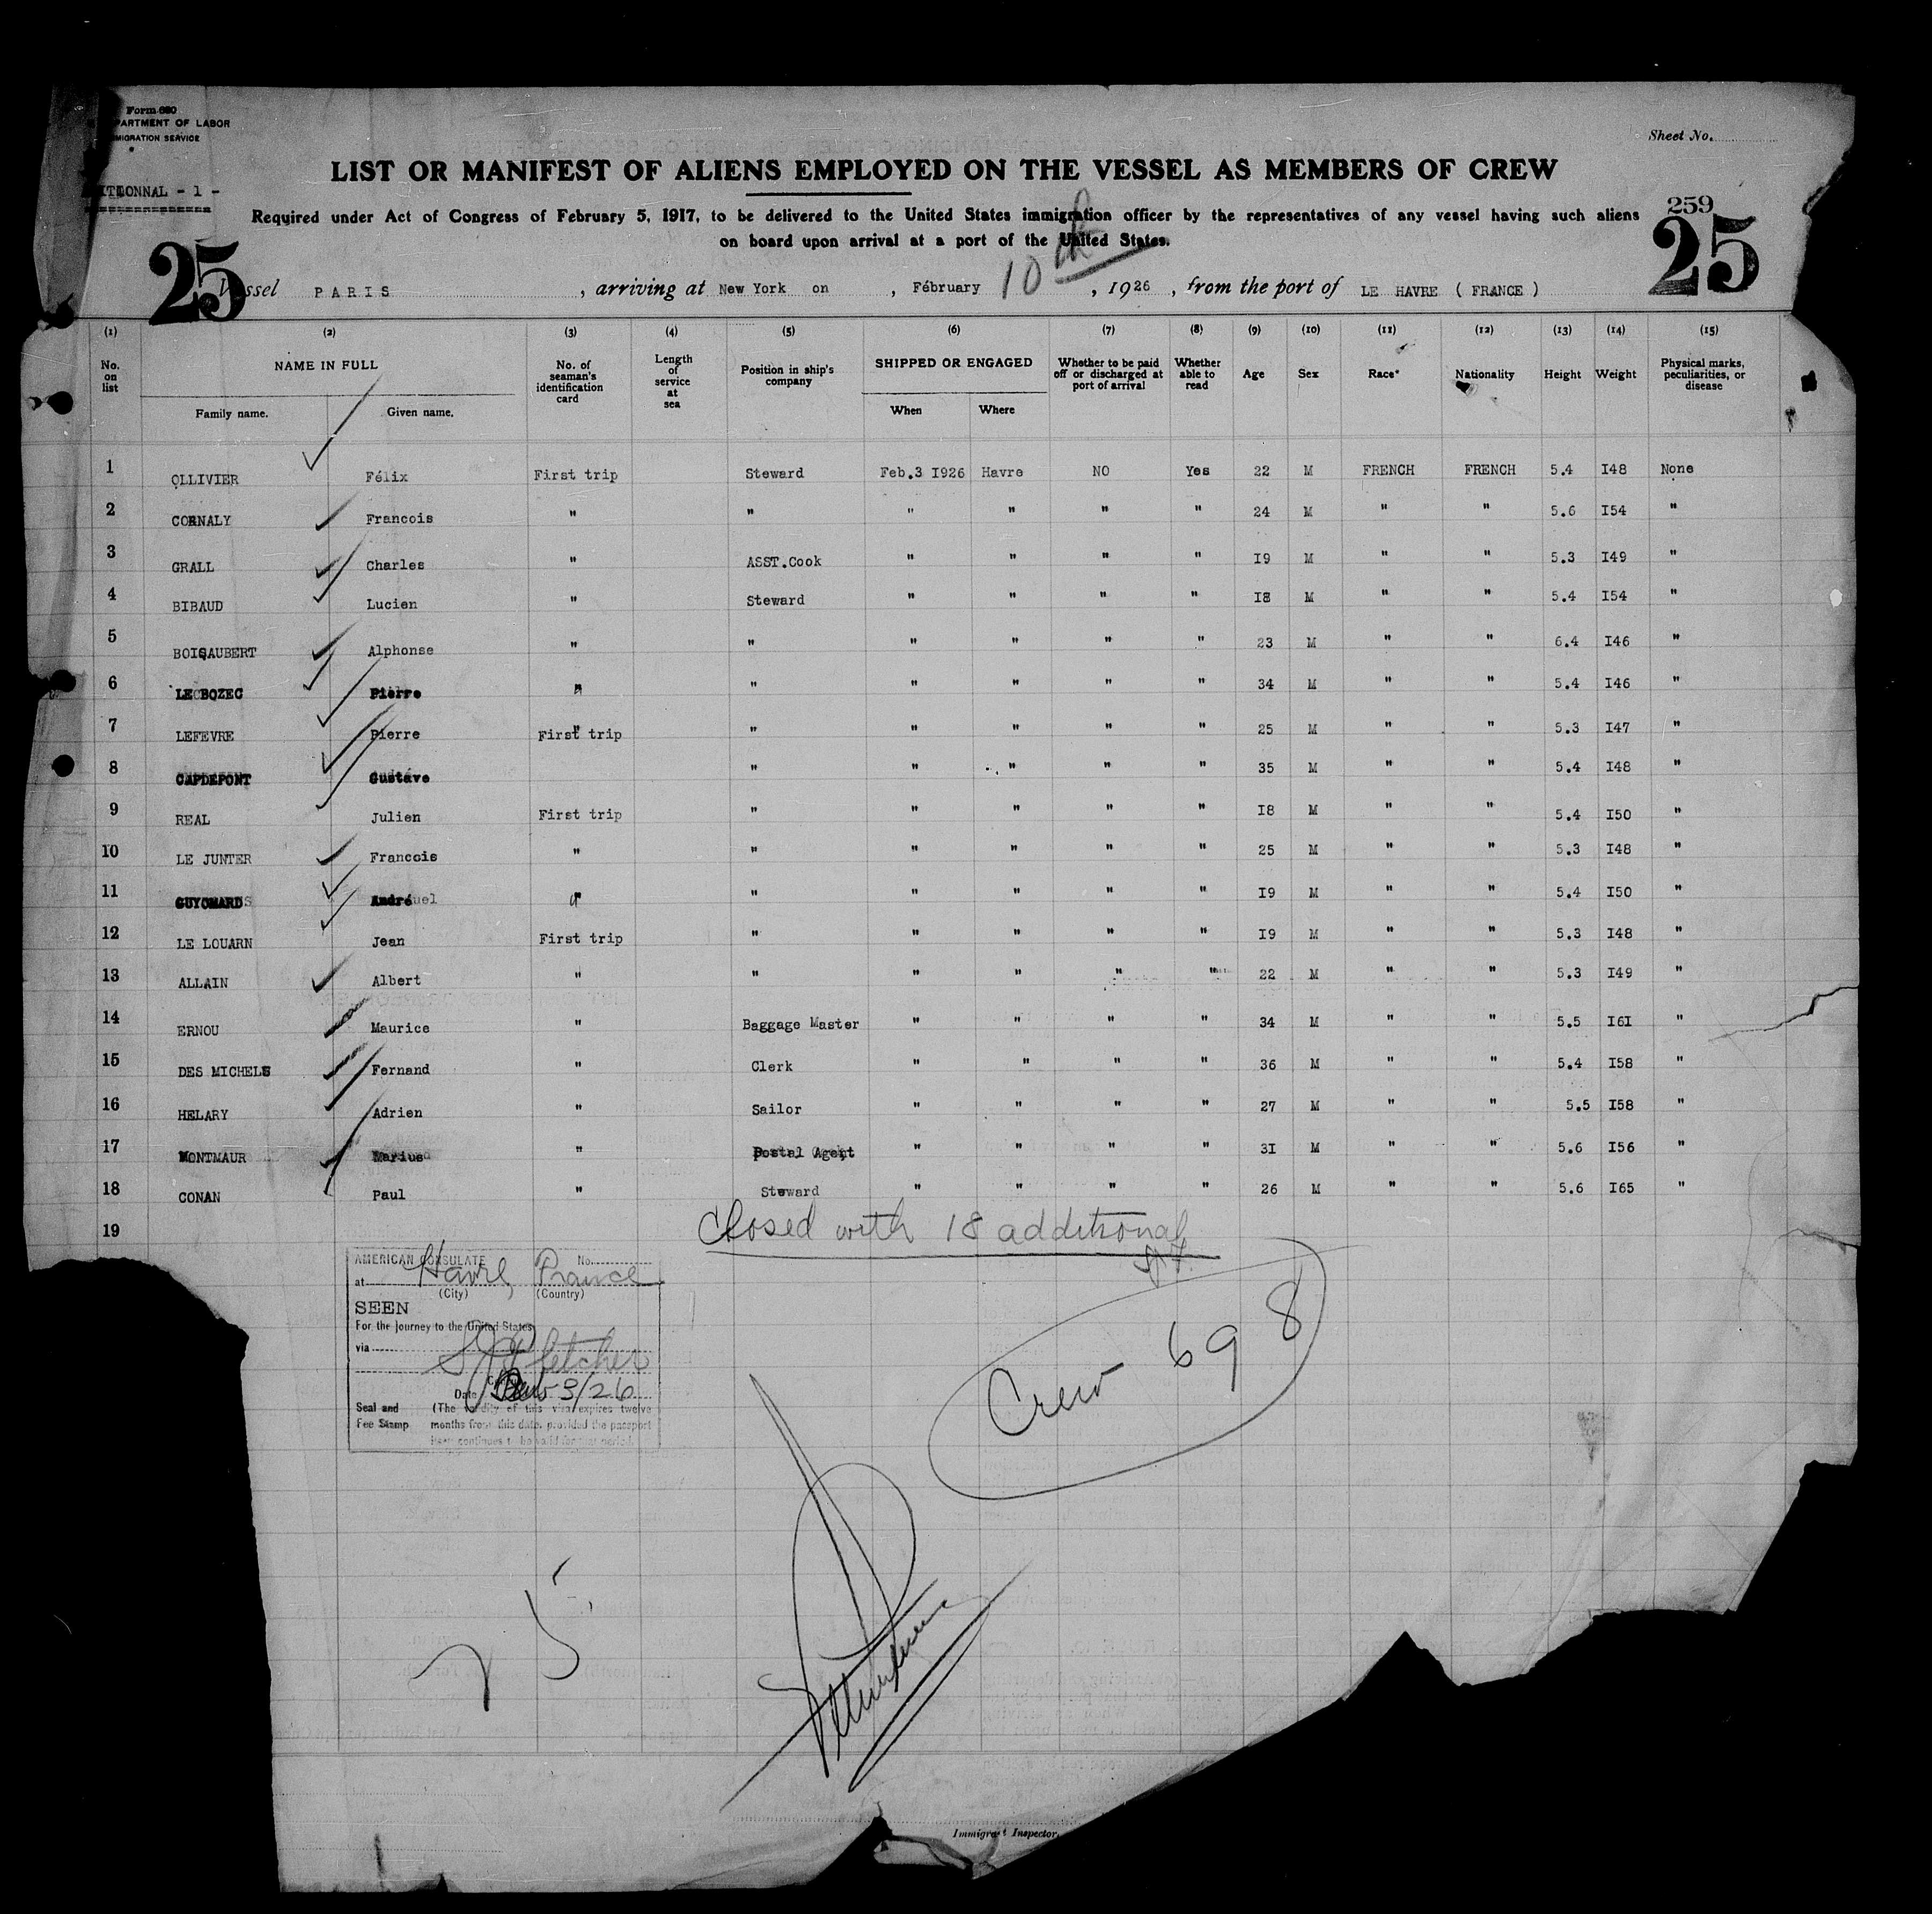 Form 680
PARTMENT OF LABOR
MIGRATION SERVICE
Sheet No.
LIST OR MANIFEST OF ALIENS EMPLOYED ON THE VESSEL AS MEMBERS OF CREW
ITIONNAL - 1 -
259
Required under Act of Congress of February 5, 1917, to be delivered to the United States immigration officer by the representatives of any vessel having such aliens
on board upon arrival at a port of the United States.
25 25
Vessel PARIS , arriving at New York on , Fébruary 10th , 1926 , from the port of LE HAVRE ( FRANCE )
(1) (2) (3) (4) (5) (6) (7) (8) (9) (10) (11) (12) (13) (14) (15)
No. on list NAME IN FULL Family name. Given name. No. of seaman's identification card Length of service at sea Position in ship's company SHIPPED OR ENGAGED When Where Whether to be paid off or discharged at port of arrival Whether able to read Age Sex Race* Nationality Height Weight Physical marks, peculiarities, or disease
1 OLLIVIER Félix First trip Steward Feb.3 I926 Havre NO Yes 22 M FRENCH FRENCH 5.4 I48 None
2 CORNALY Francois " " " " " " 24 M " " 5.6 I54 "
3 GRALL Charles " ASST.Cook " " " " I9 M " " 5.3 I49 "
4 BIBAUD Lucien " Steward " " " " I8 M " " 5.4 I54 "
5 BOISAUBERT Alphonse " " " " " " 23 M " " 6.4 I46 "
6 LE BOZEC Pierre " " " " " " 34 M " " 5.4 I46 "
7 LEFEVRE Pierre First trip " " " " " 25 M " " 5.3 I47 "
8 CAPDEPONT Gustave " " " " " 35 M " " 5.4 I48 "
9 REAL Julien First trip " " " " " I8 M " " 5.4 I50 "
10 LE JUNTER Francois " " " " " " 25 M " " 5.3 I48 "
11 GUYOMARD André " " " " " " I9 M " " 5.4 I50 "
12 LE LOUARN Jean First trip " " " " " I9 M " " 5.3 I48 "
13 ALLAIN Albert " " " " " " 22 M " " 5.3 I49 "
14 ERNOU Maurice " Baggage Master " " " " 34 M " " 5.5 I6I "
15 DES MICHELS Fernand " Clerk " " " " 36 M " " 5.4 I58 "
16 HELARY Adrien " Sailor " " " " 27 M " " 5.5 I58 "
17 MONTMAUR Marius " Postal Agent " " " " 3I M " " 5.6 I56 "
18 CONAN Paul " Steward " " " " 26 M " " 5.6 I65 "
19
Closed with 18 additional
AMERICAN CONSULATE No.
at Havre, France
(City) (Country)
SEEN
For the journey to the United States
via
Fletcher
Date 3/26
Seal and Fee Stamp
(The validity of this visa expires twelve
months from this date, provided the passport
continues to be valid for that period.
Crew 698
25
Immigrant Inspector.